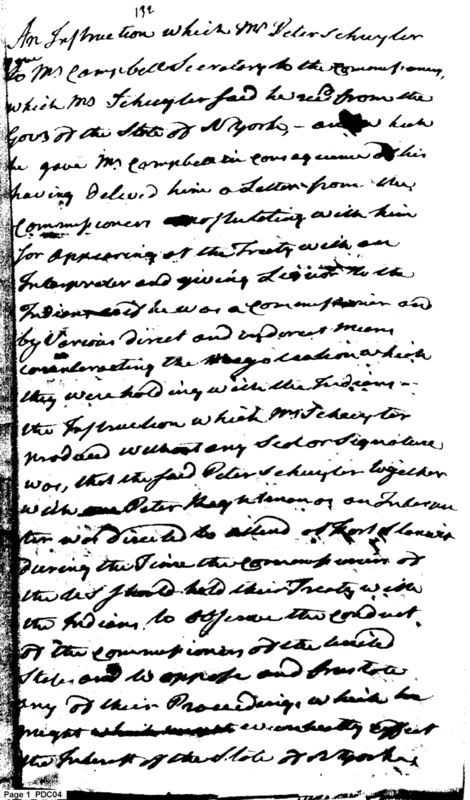 132
An Instruction which Mr Peter Schuyler
gave
to Mr Campbell Secretary to the Commissioners,
which Mr Schuyler said he recd from the
Govr of the State of N York, – and which
he gave Mr Campbell in consequence of his
having deliv'd him a Letter from the
Commissioners with him
for appearing at the Treaty with an
Interpreter and giving Liquor to the
Indians said he was a Commissioner and
by Various direct and indirect means
counteracting the Negotiation which
they were holding with the Indians –
the Instruction which Mr Schuyler
produced without any Seal or Signature
was, that the said Peter Schuyler together
with Peter an Interpre
ter was directed to attend at Fort Stanwix
during the Time the Commissioners of
the US should hold their Treaty with
the Indians to observe the conduct
of the Commissioners of the United
States and to oppose and frustrate
any of their Proceedings which
might eventually effect
the Interest of the State of N York,
Page 1 PDC04